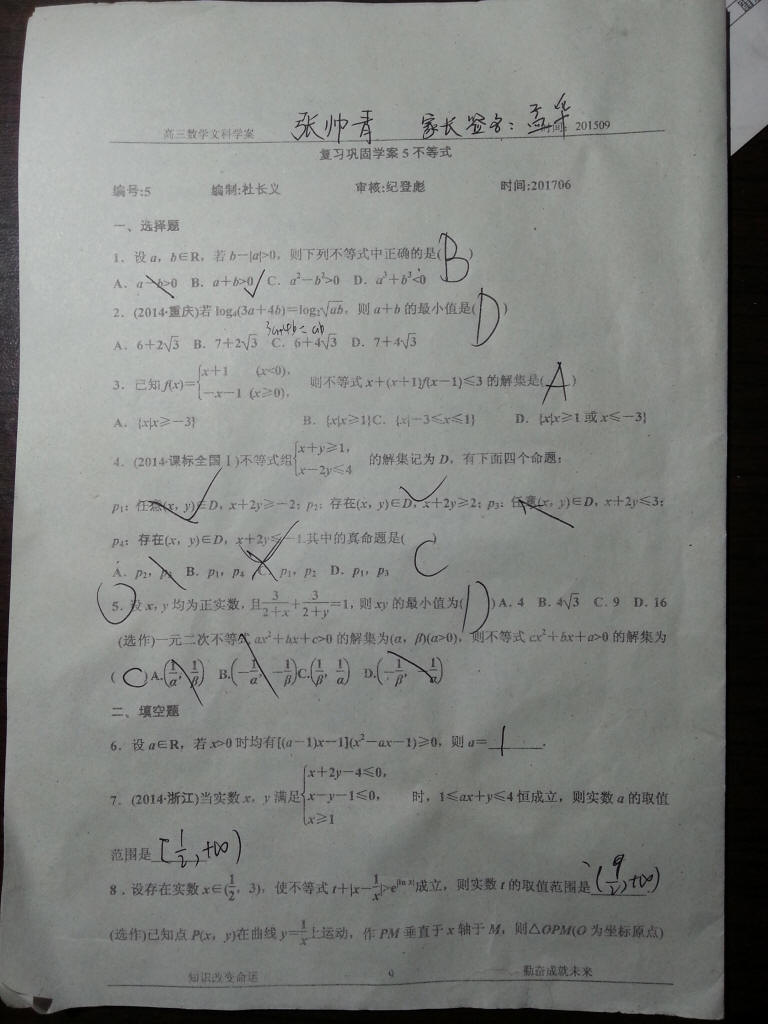 高三数学文科学案 张帅青 家长签名:孟华 时间:201509
复习巩固学案5不等式
编号:5 编制:杜长义 审核:纪登彪 时间:201706
一、选择题
1．设a，b∈R，若b－|a|>0，则下列不等式中正确的是(B)
A．a－b>0 B．a＋b>0 C．a²－b²>0 D．a³＋b³<0
2．(2014·重庆)若log₄(3a＋4b)＝log₂√ab，则a＋b的最小值是(D)
3a+4b=ab
A．6＋2√3 B．7＋2√3 C．6＋4√3 D．7＋4√3
3．已知f(x)＝{x＋1 (x<0)，
－x－1 (x≥0)， 则不等式x＋(x＋1)f(x－1)≤3的解集是(A)
A．{x|x≥－3} B．{x|x≥1}C．{x|－3≤x≤1} D．{x|x≥1或x≤－3}
4．(2014·课标全国Ⅰ)不等式组{x＋y≥1，
x－2y≤4 的解集记为D，有下面四个命题：
p₁：任意(x，y)∈D，x＋2y≥－2；p₂：存在(x，y)∈D，x＋2y≥2；p₃：任意(x，y)∈D，x＋2y≤3；
p₄：存在(x，y)∈D，x＋2y≤－1.其中的真命题是( ) C
A．p₂，p₃ B．p₁，p₄ C．p₁，p₂ D．p₁，p₃
5．设x，y均为正实数，且3/(2＋x)＋3/(2＋y)＝1，则xy的最小值为(D) A．4 B．4√3 C．9 D．16
(选作)一元二次不等式ax²＋bx＋c>0的解集为(α，β)(α>0)，则不等式cx²＋bx＋a>0的解集为
(C)A.(1/α，1/β) B.(－1/α，－1/β)C.(1/β，1/α) D.(－1/β，－1/α)
二、填空题
6．设a∈R，若x>0时均有[(a－1)x－1](x²－ax－1)≥0，则a＝1.
7．(2014·浙江)当实数x，y满足{x＋2y－4≤0，
x－y－1≤0，
x≥1 时，1≤ax＋y≤4恒成立，则实数a的取值
范围是[1/2,+∞)
8．设存在实数x∈(1/2，3)，使不等式t＋|x－1/x|>e^|ln x|成立，则实数t的取值范围是(9/2,+∞)
(选作)已知点P(x，y)在曲线y＝1/x上运动，作PM垂直于x轴于M，则△OPM(O为坐标原点)
知识改变命运 9 勤奋成就未来